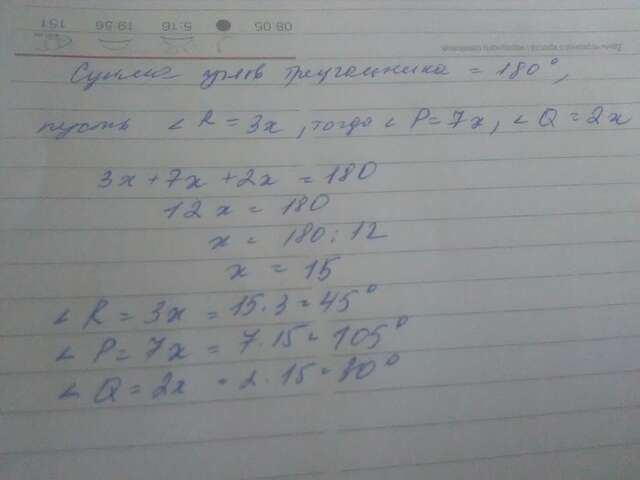 08.05 5.16 19.56 151
Сумма углов треугольника = 180°,
пусть ∠R = 3x, тогда ∠P = 7x, ∠Q = 2x
3x + 7x + 2x = 180
12x = 180
x = 180 : 12
x = 15
∠R = 3x = 15·3 = 45°
∠P = 7x = 7·15 = 105°
∠Q = 2x = 2·15 = 30°